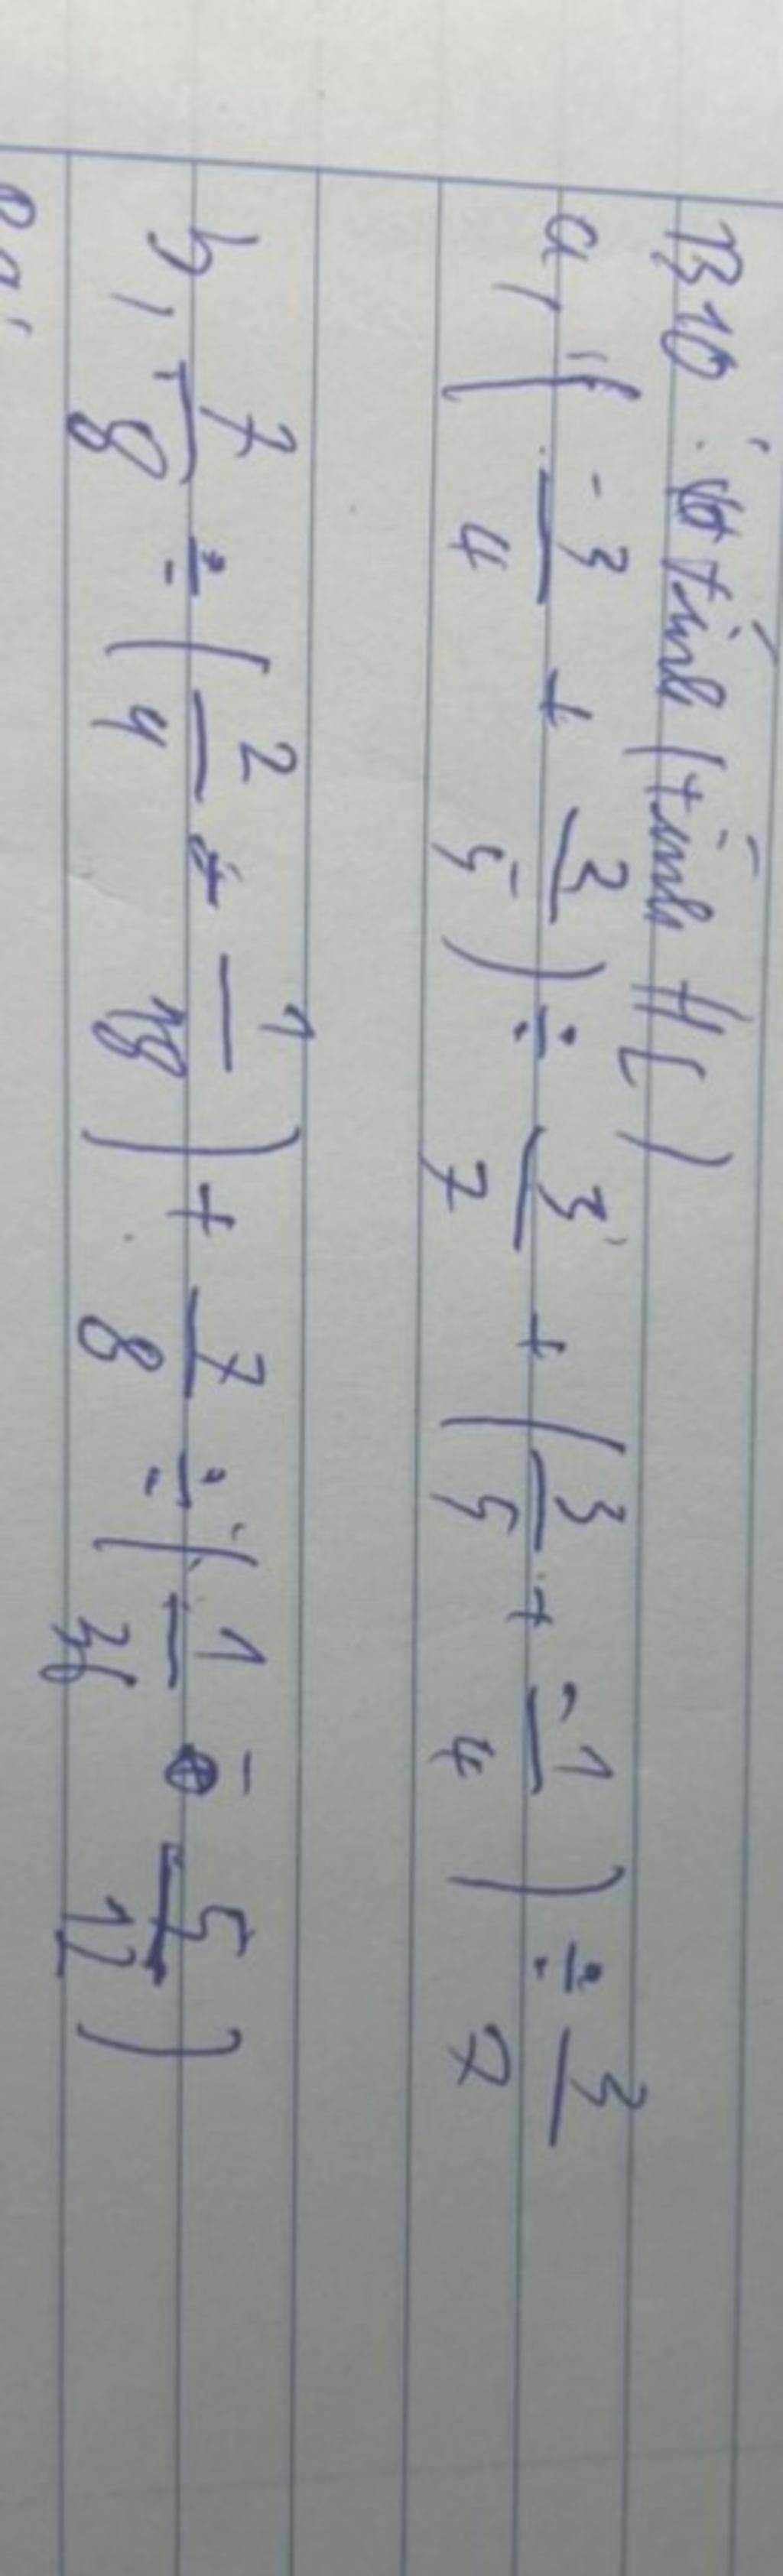 B10: tính (tính HL)
a, ( -3/4 + 3/5 ) ÷ 3/7 + ( 3/5 + -1/4 ) ÷ 3/7
b, 7/8 ÷ ( 2/9 + 1/18 ) + 7/8 ÷ ( 1/36 - 5/12 )